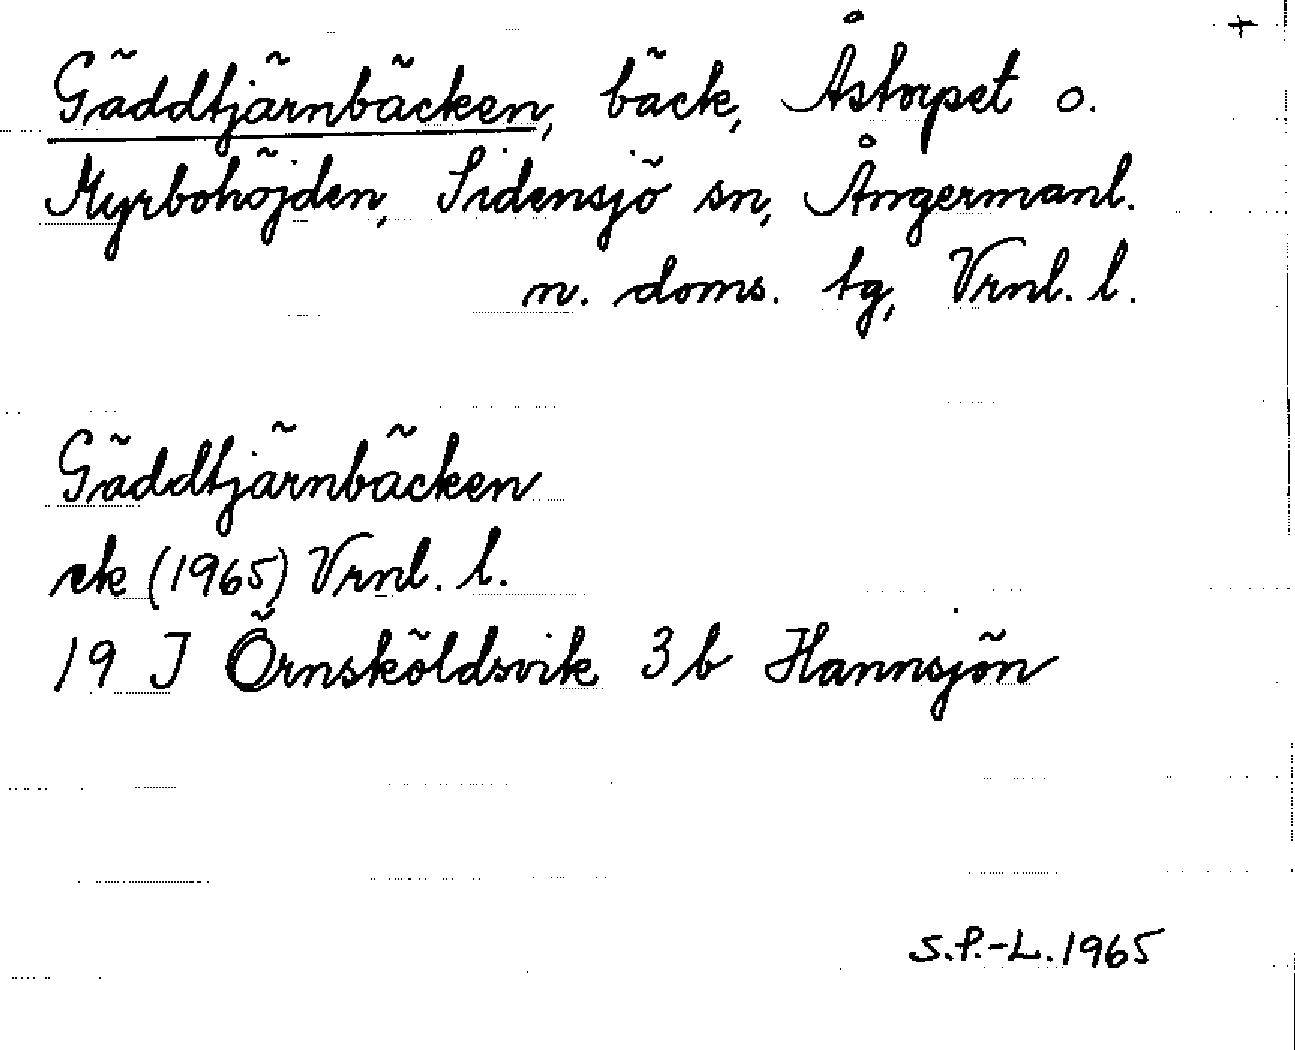 Gäddtjärnbäcken, bäck, Åstorpet o.
Myrbohöjden, Sidensjö sn, Ångermanl.
n. doms. tg, Vrnl. l.
Gäddtjärnbäcken
ek (1965) Vrnl. l.
19 J Örnsköldsvik 3 b Hannsjön
S.P.-L. 1965